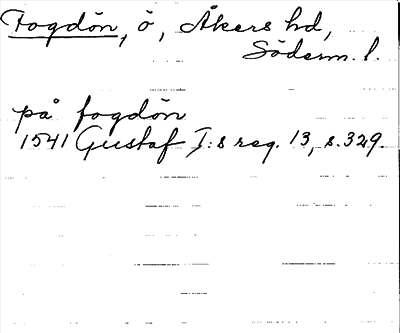 Fogdön, ö, Åkers hd,
Söderm. l.
på fogdön
1541 Gustaf I:s reg. 13, s. 329.